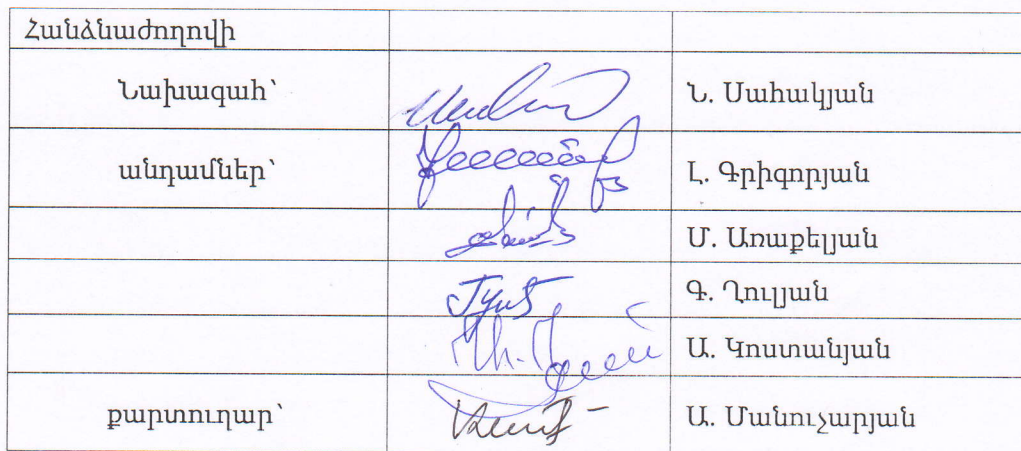 Հանձնաժողովի
Նախագահ՝ Ն. Սահակյան
անդամներ՝ Լ. Գրիգորյան
Մ. Առաքելյան
Գ. Ղուլյան
Ա. Կոստանյան
քարտուղար՝ Ա. Մանուչարյան